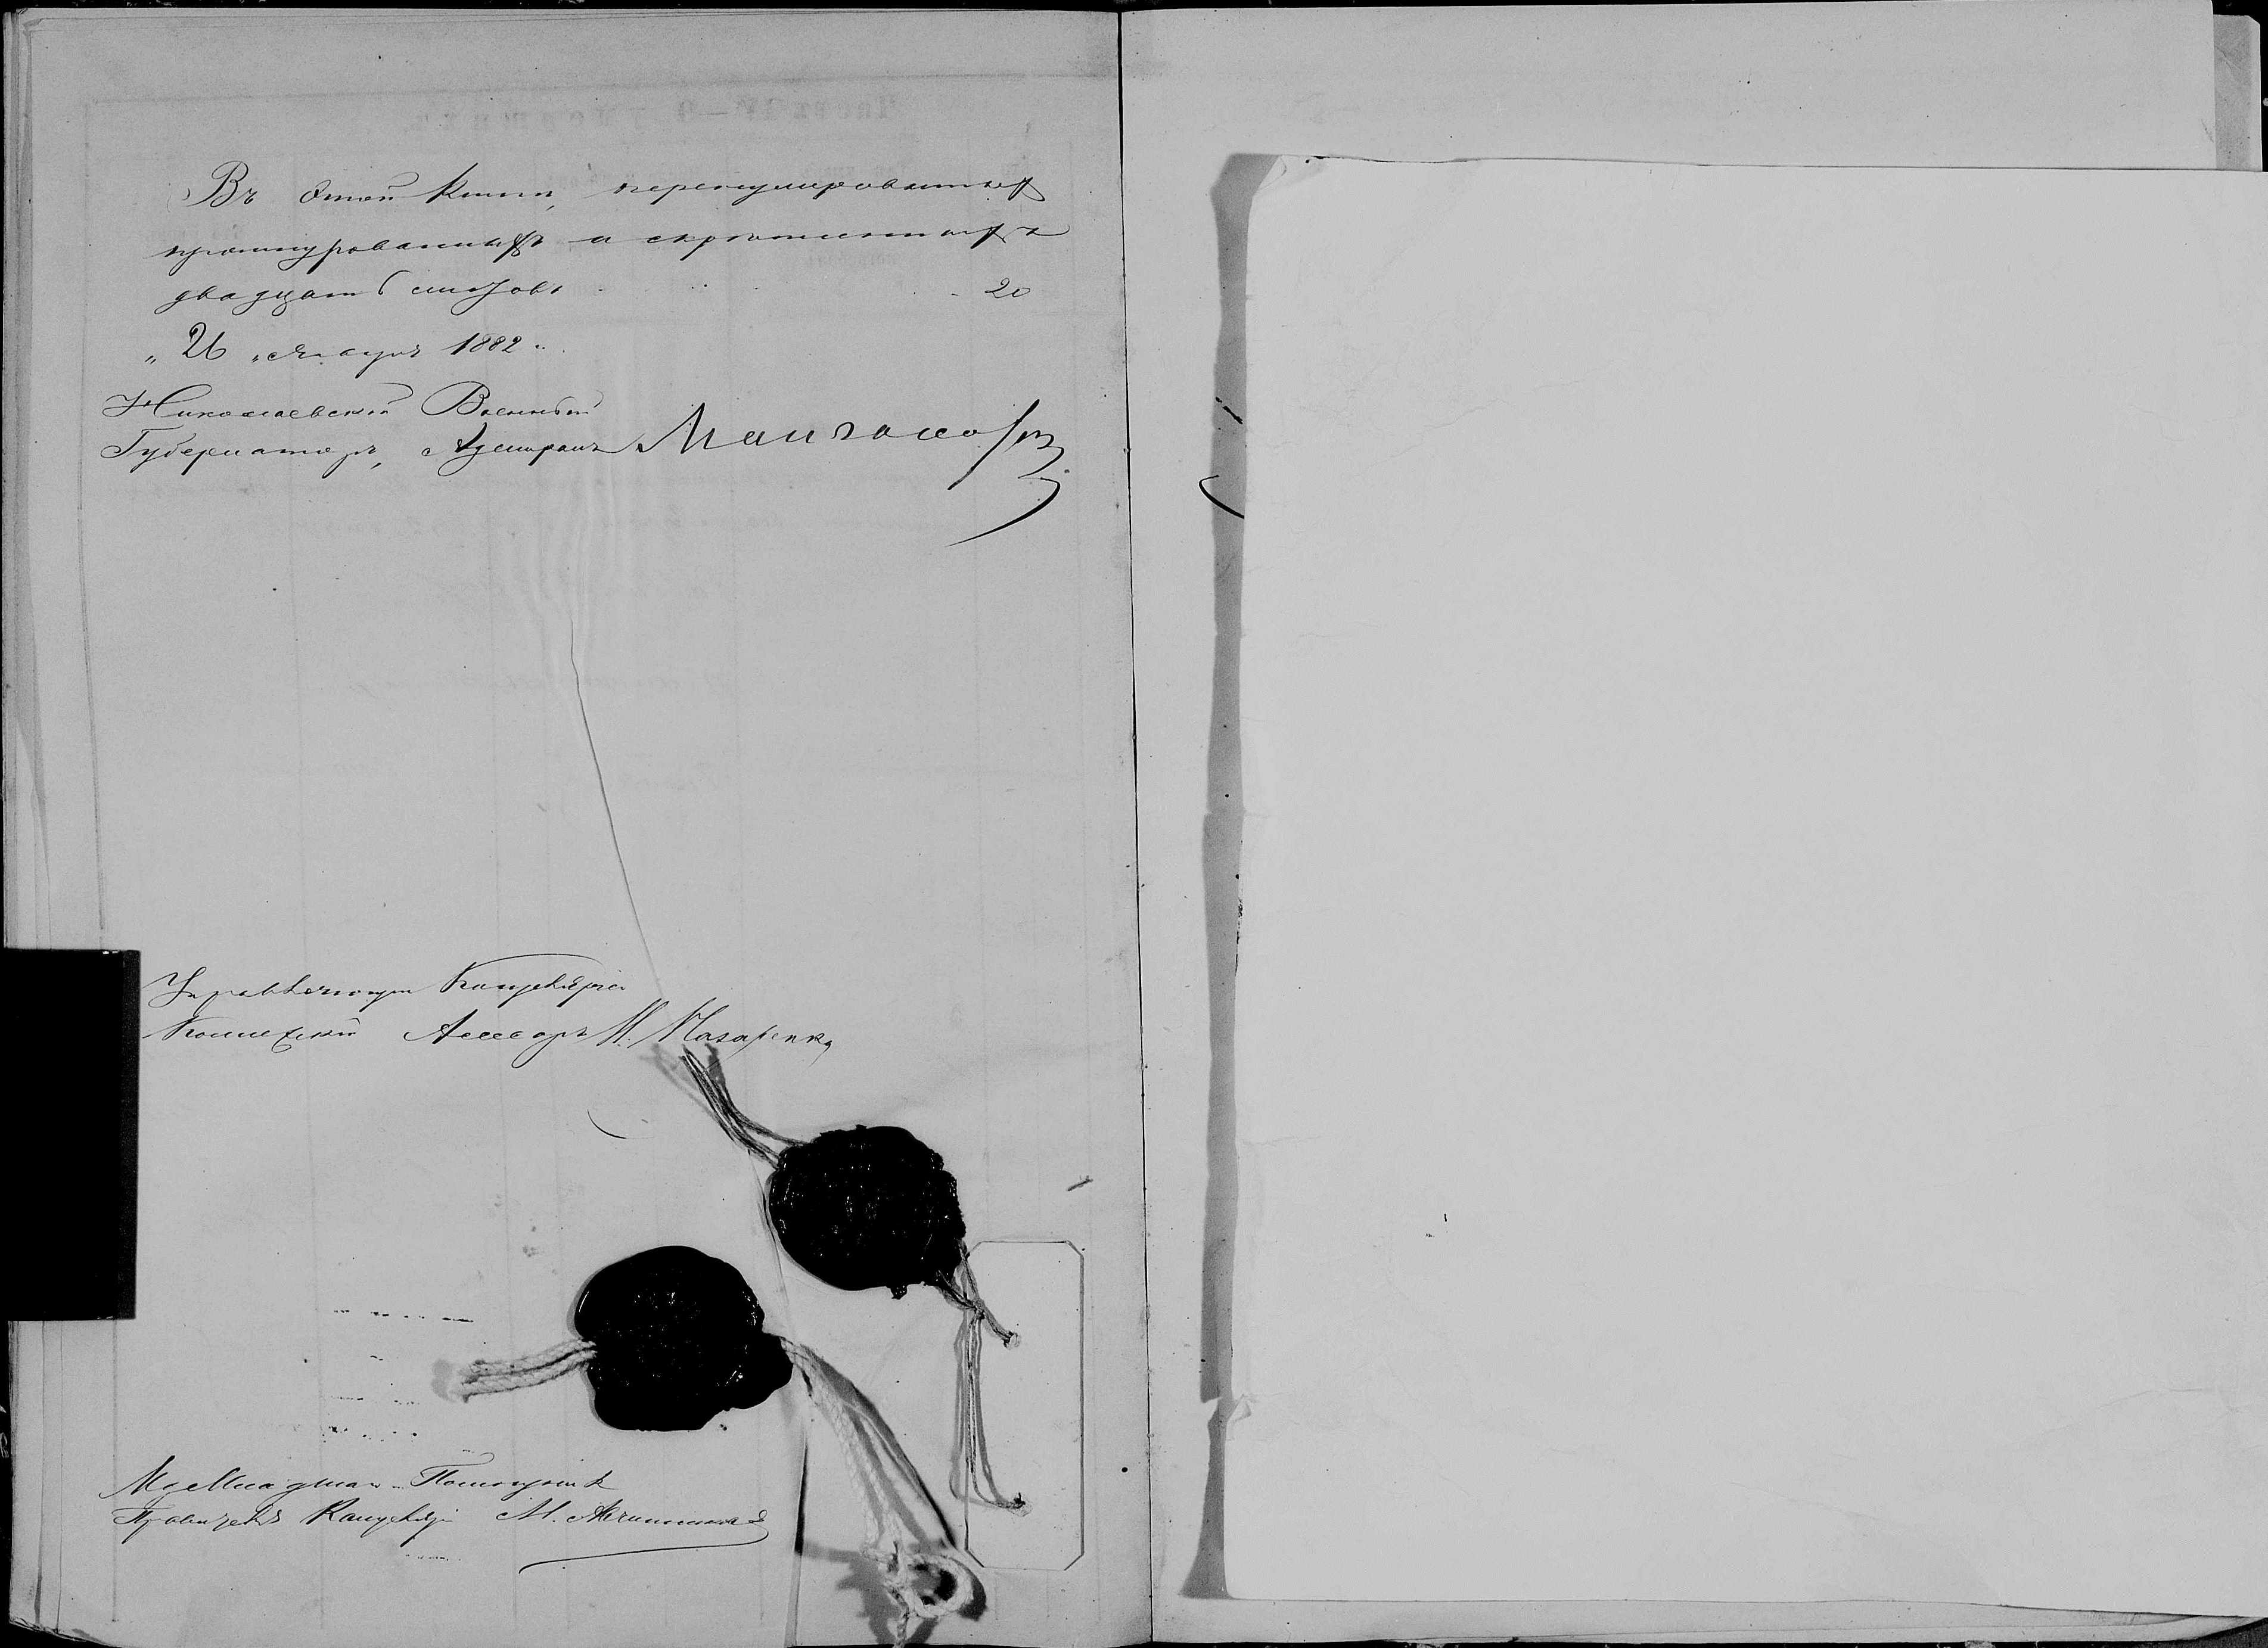 Въ этой книгѣ, перенумерованныхъ
прошнурованныхъ и скрѣпленныхъ
двадцать листовъ 20
„26" Января 1882 г.
Николаевскій Военный
Губернаторъ, Адмиралъ Манганари
Управляющій Канцеляріею
Коллежскій Ассесоръ М. Назаренко
Младшій Помощникъ
Правителя Канцеляріи М.